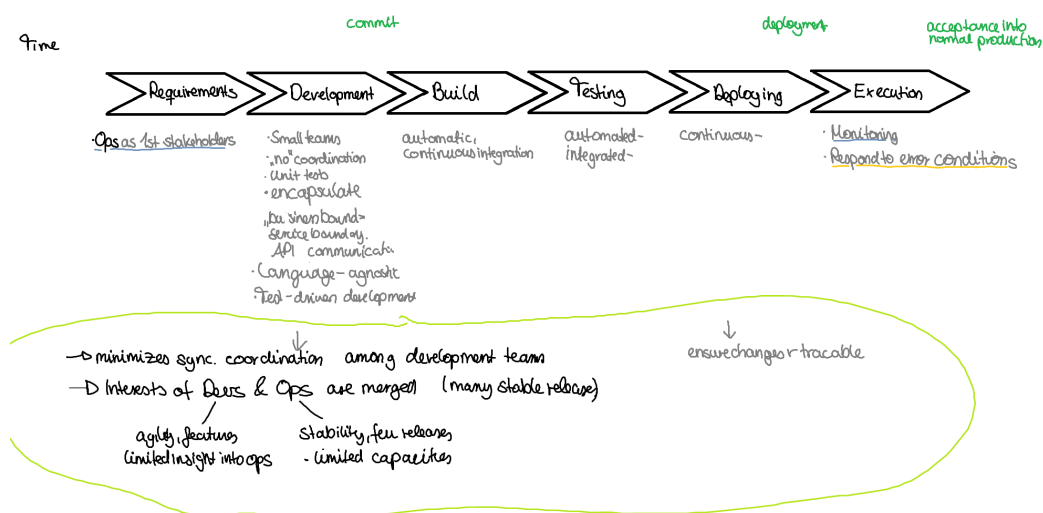 commit
deployment
acceptance into
normal production
Time
Requirements
Development
Build
Testing
Deploying
Execution
·Ops as 1st stakeholders
·Small teams
·„no" coordination
·Unit tests
·encapsulate
„business bound=
service bounday.
API communicati
·Language-agnostic
·Test-driven development
automatic,
continuous integration
automated-
integrated-
continuous-
·Monitoring
·Respond to error conditions
→minimizes sync. coordination among development teams
→Interests of Devs & Ops are merged (many stable release)
agility, features
limited insight into ops
stability, few releases
-limited capacities
ensure changes r tracable